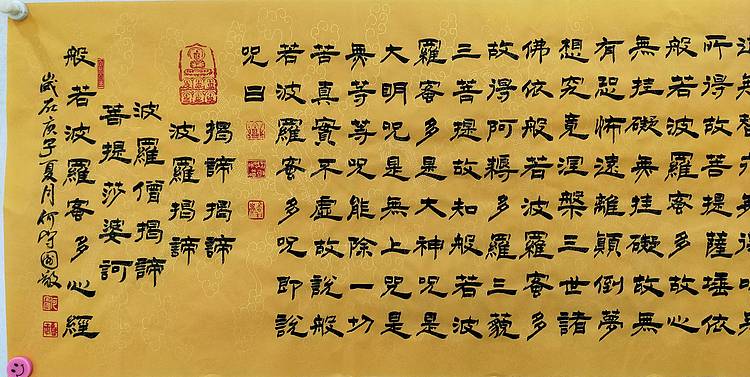 所得故菩提薩埵依
般若波羅蜜多故心
無挂礙無挂礙故無
有恐怖遠離顛倒夢
想究竟涅槃三世諸
佛依般若波羅蜜多
故得阿耨多羅三藐
三菩提故知般若波
羅蜜多是大神呪是
大明呪是無上咒是
無等等呪能除一切
苦真實不虛故說般
若波羅蜜多呪即說
呪曰
揭諦揭諦
波羅揭諦
波羅僧揭諦
菩提莎婆訶
般若波羅蜜多心經
歲在庚子夏月何守國敬